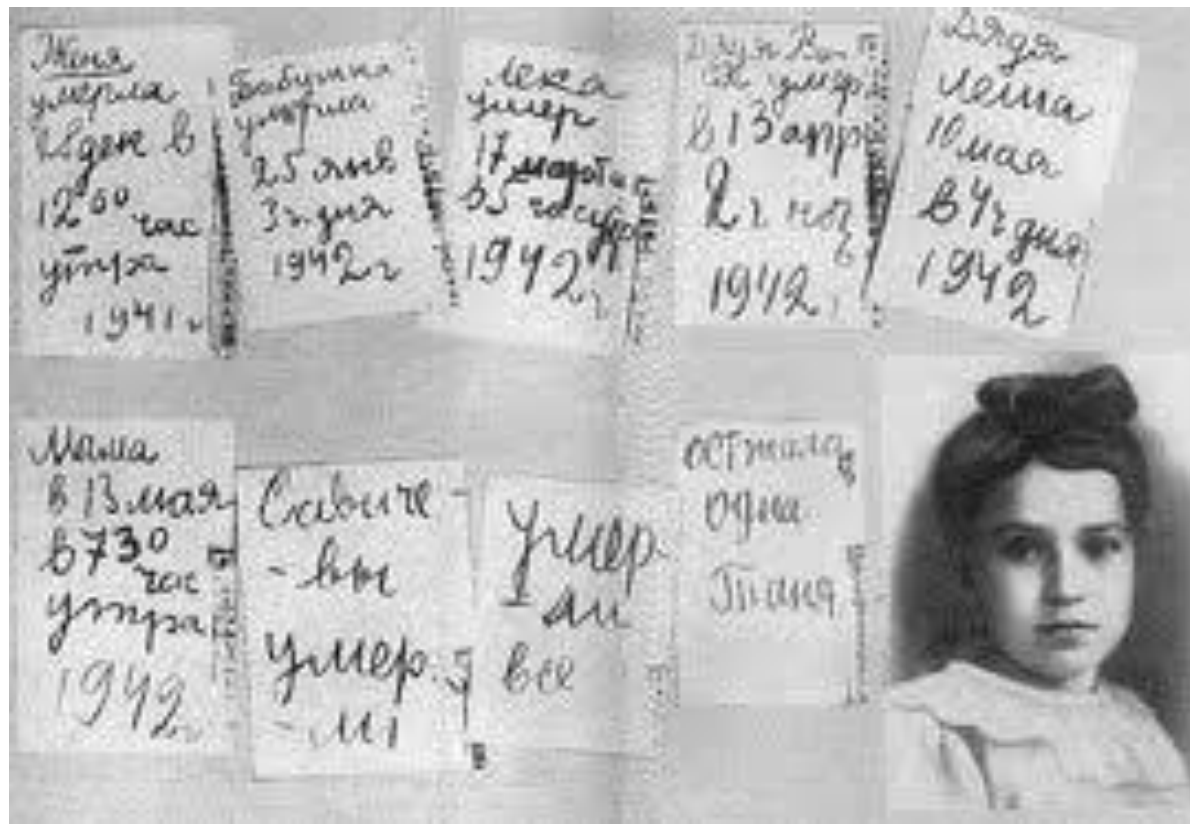 Женя
умерла
28 ден в
12 00 час
утра
1941 г
Бабушка
умерла
25 янв
3 ч. дня
1942 г
Лека
умер
17 марта
в 5 час утр
1942 г
Дядя Ва
ся умер
в 13 апр
2 ч ноч
ь
1942
Дядя
Леша
10 мая
в 4 ч дня
1942
Мама
в 13 мая
в 7 30
час
утра
1942 г
Савиче
- вы
умер
- ли
Умер
- ли
все
осталась
одна
Таня